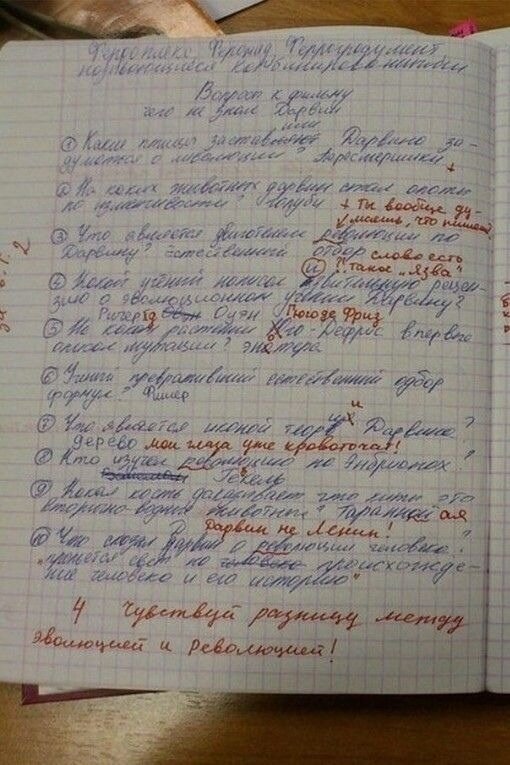 Вопрос к фильму
чего не знал Дарвин
① Какие птицы заставляют Дарвина за-
думаться о эволюции?
② На каких животных дарвин ставил опыты
по изменчивости? Голуби + Ты вообще ду-
маешь, что пишешь?
③ Что является двигателем революции по
Дарвину? Естественный отбор слово есть
и ?! такое "Язва"
④ Какой учёный написал язвительную рецен-
зию о эволюционном учении Дарвина?
Ричард Оуэн Гюго де Фриз
⑤ На каком растении Хго-Дефрис впервые
описал мутации?
⑥ Учёный превративший естественный одбор
формулу? Фишер
⑦ Что является иконой теории Дарвина?
дерево мои глаза уже кровоточат!
⑧ Кто изучал революцию по Эмбрионах?
Гекель
⑨ Какая кость доказывает что киты это
вторично-водние животные? Таранная
Дарвин не Ленин!
⑩ Что сказал Дарвин о революции человека?
"прольется свет на происхожде-
ние человека и его историю"
4 Чувствуй разницу между
Эволюцией и Революцией!